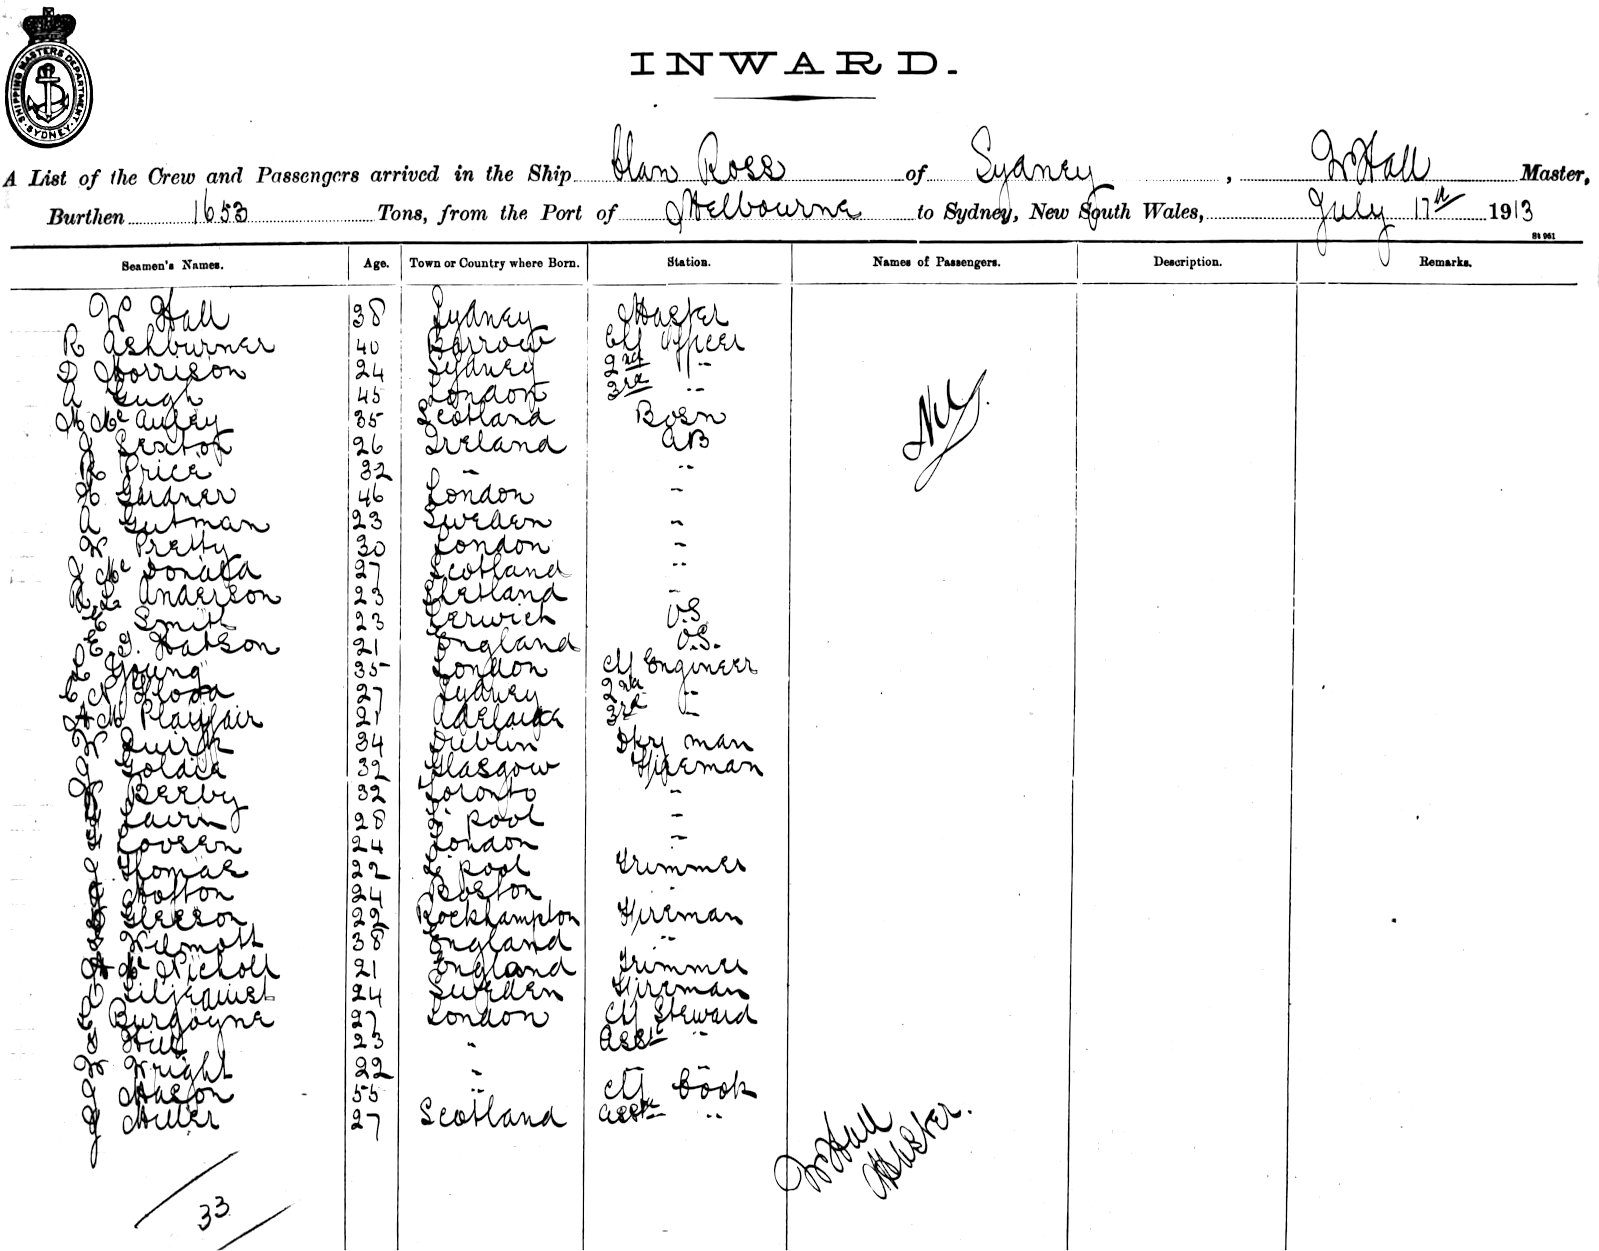 SHIPPING MASTERS DEPARTMENT
SYDNEY
INWARD.
A List of the Crew and Passengers arrived in the Ship Alan Ross of Sydney, W Hall Master,
Burthen 1653 Tons, from the Port of Melbourne to Sydney, New South Wales, July 17th 1913
St 961
Seamen's Names. Age. Town or Country where Born. Station. Names of Passengers. Description. Remarks.
W Hall 38 Sydney Master
R Ashburner 40 Barrow Chf Officer
D Morrison 24 Sydney 2nd "
A Gugh 45 London 3rd "
M McAuley 35 Scotland Bosn
J Sexton 26 Ireland AB
R Price 32 " "
H Gardner 46 London "
A Gutman 23 Sweden "
J W Pretty 30 London "
J McDonald 27 Scotland "
R L Anderson 23 Shetland "
E Smith 23 Lerwick O.S.
E J. Watson 21 England O.S.
L Young 35 London Chf Engineer
C N Flood 27 Sydney 2nd "
H M Playfair 21 Adelaide 3rd "
W Quirk 34 Dublin Dky man
J Goldie 32 Glasgow Fireman
W Beeby 32 Toronto "
Lavin 28 L'pool "
Loosen 24 London "
Thomas 22 L'pool Trimmer
Mofton 24 Boston "
Gleeson 22 Rockhampton Fireman
Wilmott 38 England "
McNicholl 21 England Trimmer
Liljequist 24 Sweden Fireman
Burgoyne 27 London Chf Steward
Hill 23 " Asst "
W Wright 22 " "
J Mason 55 " Chf Cook
J Miller 27 Scotland Asst "
Nil
W Hall
Master.
33